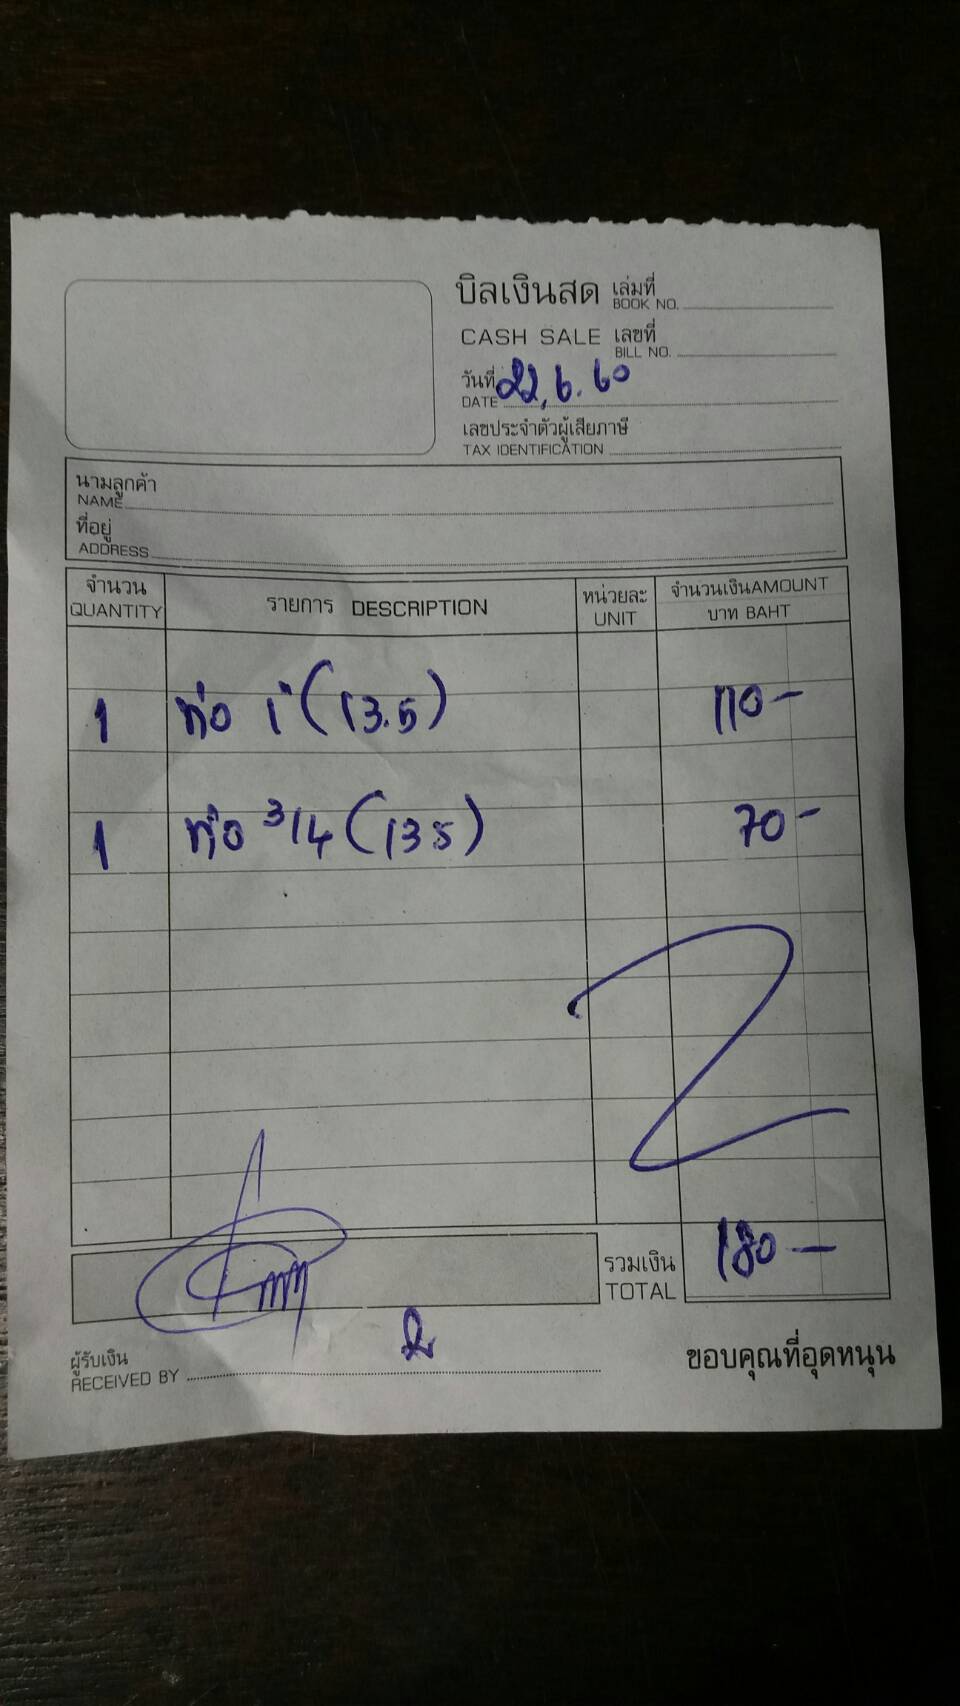 บิลเงินสด เล่มที่
BOOK NO.
CASH SALE เลขที่
BILL NO.
วันที่ 22, 6. 60
DATE
เลขประจำตัวผู้เสียภาษี
TAX IDENTIFICATION
นามลูกค้า
NAME
ที่อยู่
ADDRESS
จำนวน รายการ DESCRIPTION หน่วยละ จำนวนเงินAMOUNT
QUANTITY UNIT บาท BAHT
1 ท่อ 1" (13.5) 110-
1 ท่อ 3/4 (135) 70-
รวมเงิน 180-
TOTAL
ผู้รับเงิน
RECEIVED BY
ขอบคุณที่อุดหนุน